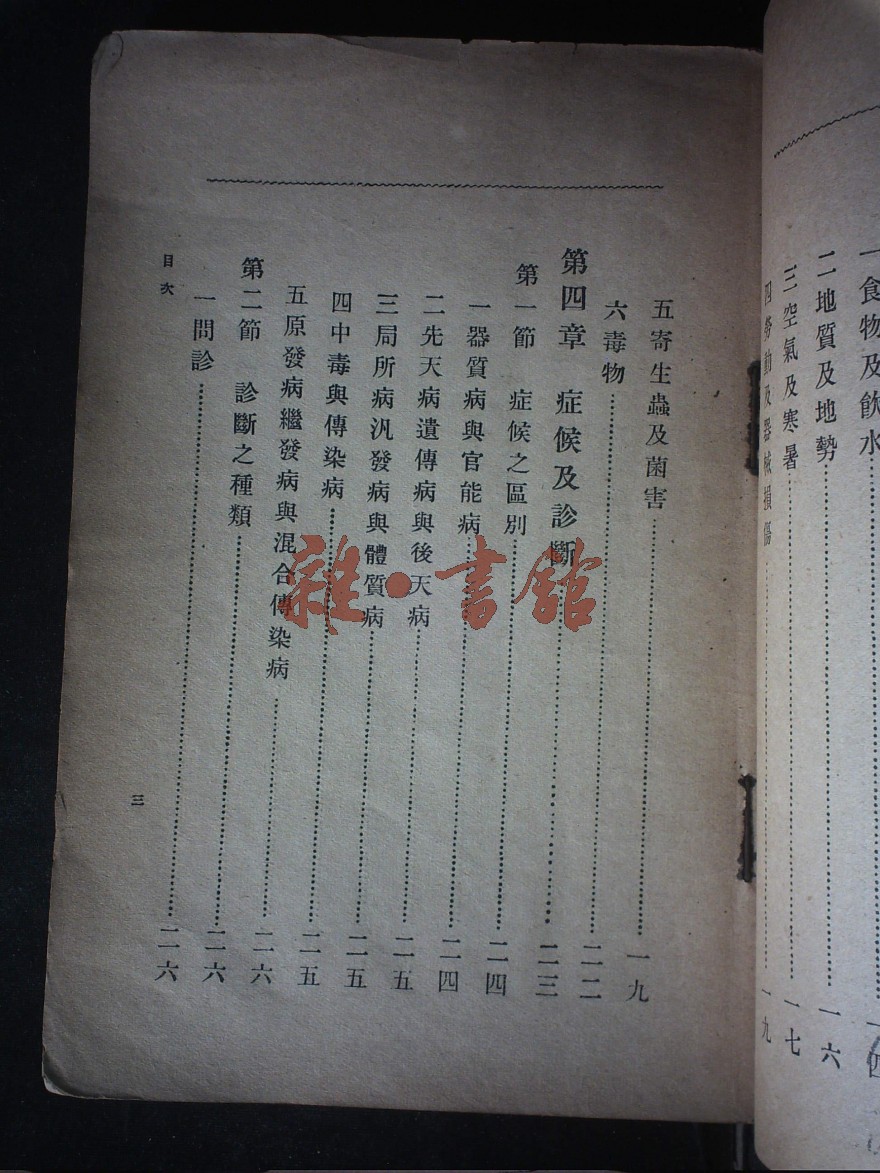 一食物及飲水……一四
二地質及地勢……一六
三空氣及寒暑……一七
四勞動及器械損傷……一九
五寄生蟲及菌害……一九
六毒物……二二
第四章 症候及診斷……二三
第一節 症候之區別……二四
一器質病與官能病……二四
二先天病遺傳病與後天病……二五
三局所病汎發病與體質病……二五
四中毒與傳染病……二五
五原發病繼發病與混合傳染病……二六
第二節 診斷之種類……二六
一問診……二六
目次
三
雜·書館